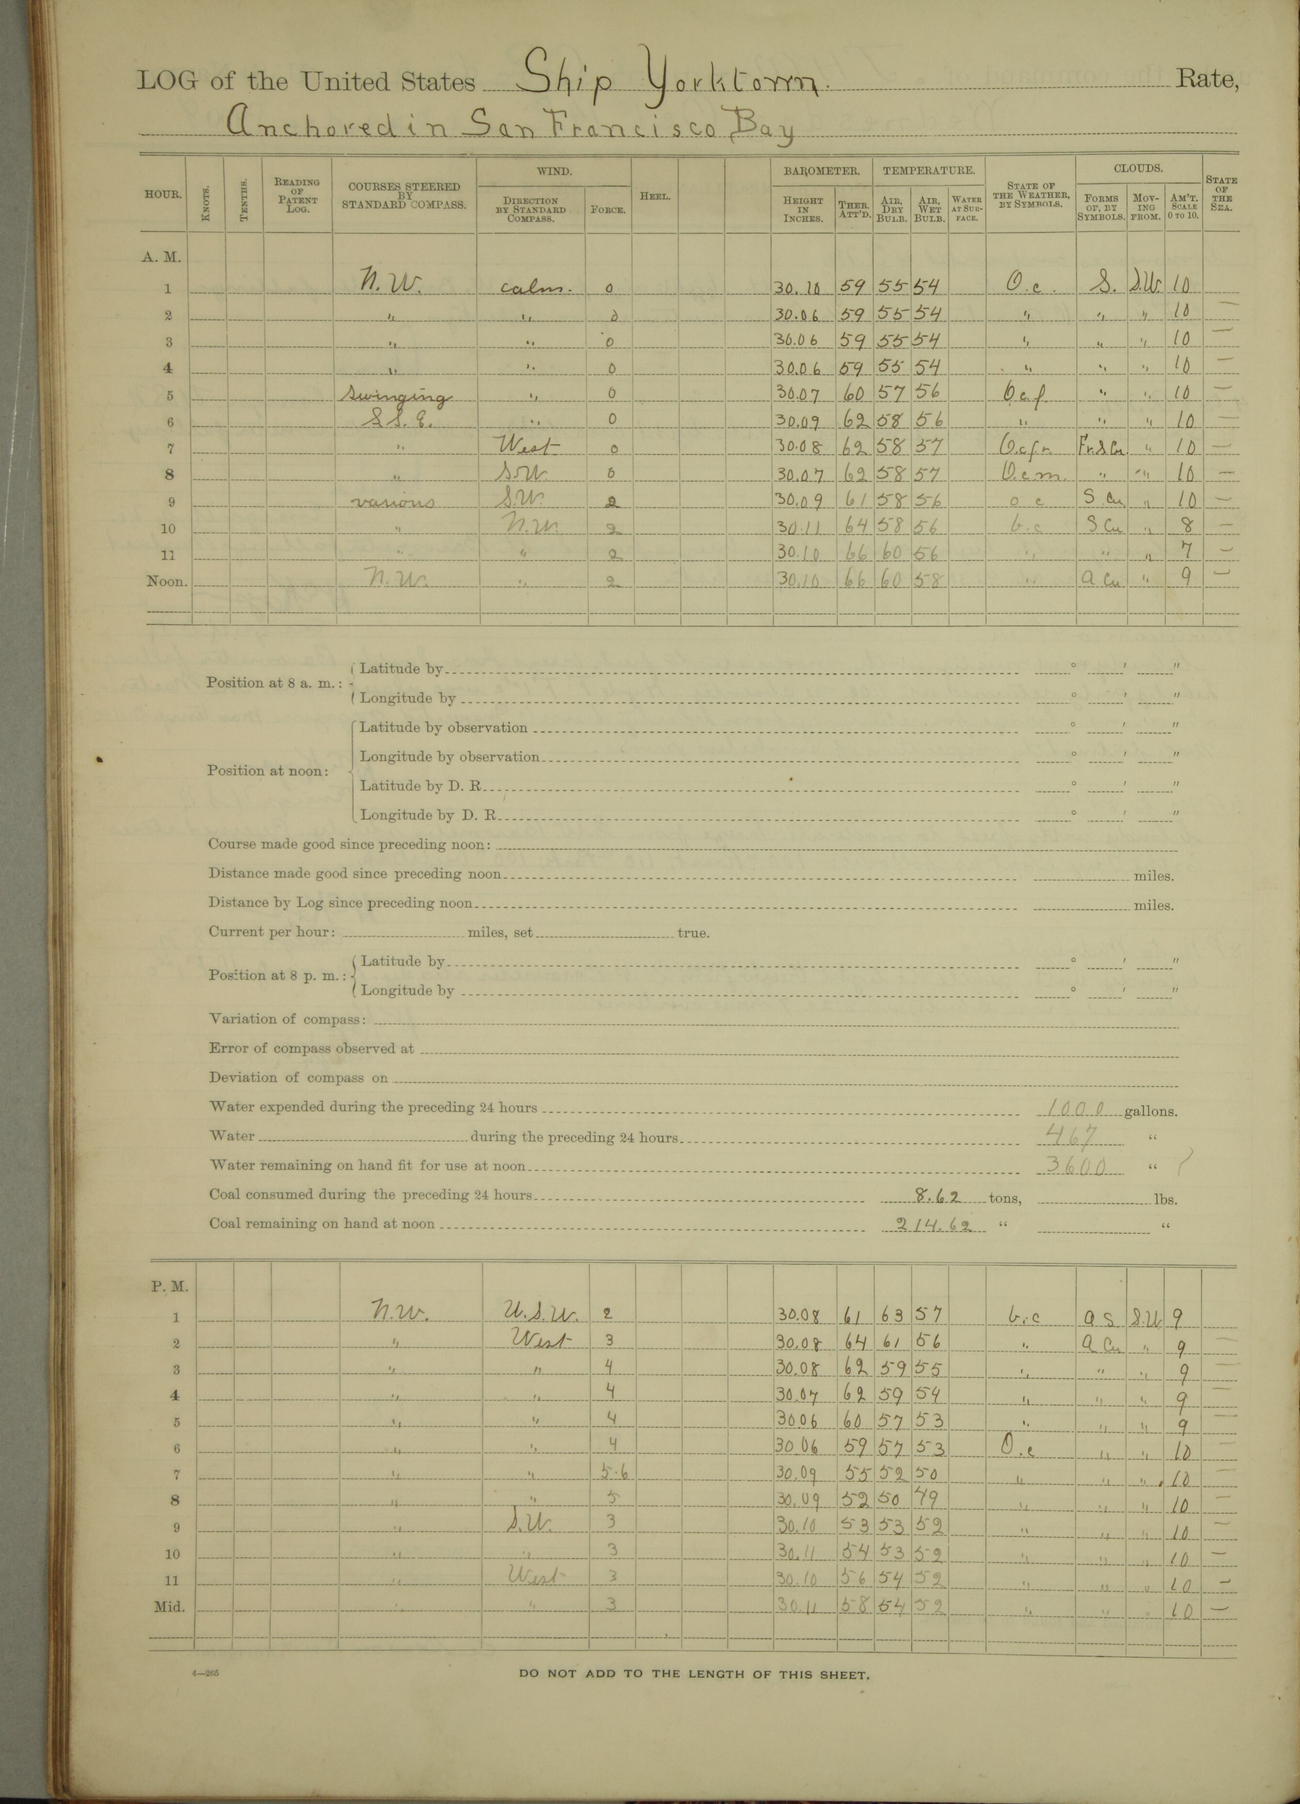 LOG of the United States Ship Yorktown. Rate,
Anchored in San Francisco Bay
HOUR. KNOTS. TENTHS. READING OF PATENT LOG. COURSES STEERED BY STANDARD COMPASS. WIND. DIRECTION BY STANDARD COMPASS. FORCE. HEEL. BAROMETER. HEIGHT IN INCHES. THER. ATT'D. TEMPERATURE. AIR, DRY BULB. AIR, WET BULB. WATER AT SURFACE. STATE OF THE WEATHER, BY SYMBOLS. CLOUDS. FORMS OF, BY SYMBOLS. MOVING FROM. AM'T. SCALE 0 TO 10. STATE OF THE SEA.
A. M.
1 N.W. calm. 0 30.10 59 55 54 O.c. S. S.W. 10
2 " " 0 30.06 59 55 54 " " " 10 —
3 " " 0 30.06 59 55 54 " " " 10 —
4 " " 0 30.06 59 55 54 " " " 10 —
5 swinging " 0 30.07 60 57 56 O.c.f. " " 10 —
6 S.S.E. " 0 30.09 62 58 56 " " " 10 —
7 " West 0 30.08 62 58 57 Fr.S.Cu. " 10 —
8 " S.W. 0 30.07 62 58 57 O.c.m. " " 10 —
9 various S.W. 2 30.09 61 58 56 o c S Cu " 10 —
10 " N.W. 2 30.11 64 58 56 b.c S Cu " 8 —
11 " " 2 30.10 66 60 56 " " " 7 —
Noon. N.W. " 2 30.10 66 60 58 " a Cu " 9 —
Position at 8 a. m.: Latitude by ° ′ ″
Longitude by ° ′ ″
Position at noon: Latitude by observation ° ′ ″
Longitude by observation ° ′ ″
Latitude by D. R. ° ′ ″
Longitude by D. R. ° ′ ″
Course made good since preceding noon:
Distance made good since preceding noon miles.
Distance by Log since preceding noon miles.
Current per hour: miles, set true.
Position at 8 p. m.: Latitude by ° ′ ″
Longitude by ° ′ ″
Variation of compass:
Error of compass observed at
Deviation of compass on
Water expended during the preceding 24 hours 1000 gallons.
Water during the preceding 24 hours 467 "
Water remaining on hand fit for use at noon 3600 "
Coal consumed during the preceding 24 hours 8.62 tons, lbs.
Coal remaining on hand at noon 214.62 " "
P. M.
1 N.W. W.S.W. 2 30.08 61 63 57 b.c a S S.W 9
2 " West 3 30.08 64 61 56 " a Cu " 9 —
3 " " 4 30.08 62 59 55 " " " 9 —
4 " " 4 30.07 62 59 54 " " " 9 —
5 " " 4 30.06 60 57 53 " " " 9 —
6 " " 4 30.06 59 57 53 O.c " " 10 —
7 " " 5-6 30.09 55 52 50 " " " 10 —
8 " " 5 30.09 52 50 49 " " " 10 —
9 " S.W. 3 30.10 53 53 52 " " " 10 —
10 " " 3 30.11 54 53 52 " " " 10 —
11 " West 3 30.10 56 54 52 " " " 10 —
Mid. " " 3 30.11 58 54 52 " " " 10 —
4—265 DO NOT ADD TO THE LENGTH OF THIS SHEET.